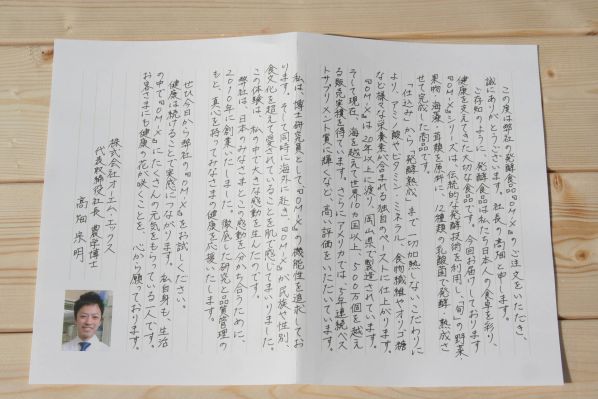 この度は弊社の発酵食品『OM-X』のご注文をいただき、
誠にありがとうございます。社長の高畑と申します。
ご存知のように、発酵食品は私たち日本人の食卓を彩り、
健康を支えてきた大切な食品です。今回お届けしております
『OM-X』シリーズは、伝統的な発酵技術を利用し、「旬」の野菜
果物、海藻、茸類を原料に、12種類の乳酸菌で発酵、熟成さ
せて完成した商品です。
「仕込み」から「発酵熟成」まで一切加熱しないこだわりに
より、アミノ酸やビタミン・ミネラル、食物繊維やオリゴ糖
など様々な栄養素が含まれる独自のペーストに仕上がります。
『OM-X』は20年以上に渡り、岡山県で製造されています。
そして現在、海を越えて世界10カ国以上、500万個を超え
る販売実績を得ています。さらにアメリカでは、5年連続ベス
トサプリメント賞に輝くなど、高い評価をいただいています。
私は、博士研究員として『OM-X』の機能性を追求してお
ります。そして同時に海外に赴き、『OM-X』が民族や性別、
食文化を超えて愛されていることを肌で感じてまいりました。
この体験は、私の中で大きな感動を生んだのです。
弊社は、日本のみなさまとこの感動を分かち合うために、
2010年に創業いたしました。徹底した研究と品質管理の
もと、真心を持ってみなさまの健康を応援いたします。
ぜひ今日から弊社の『OM-X』をお試しください。
健康は続けることで実感につながります。私自身も、生活
の中で『OM-X』にたくさんの元気をもらっている一人です。
お客さまにも健康の花が咲くことを、心から願っております。
株式会社オーエム・エックス
代表取締役社長 農学博士
高畑 宗明